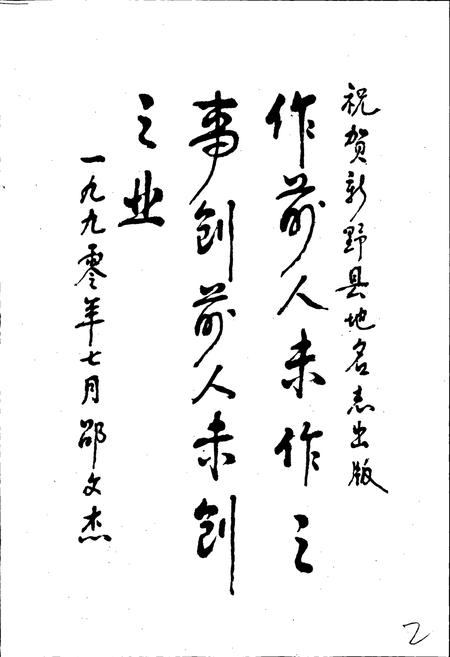 祝贺新野县地名志出版
作前人未作之
事创前人未创
之业
一九九零年七月邵文杰
2